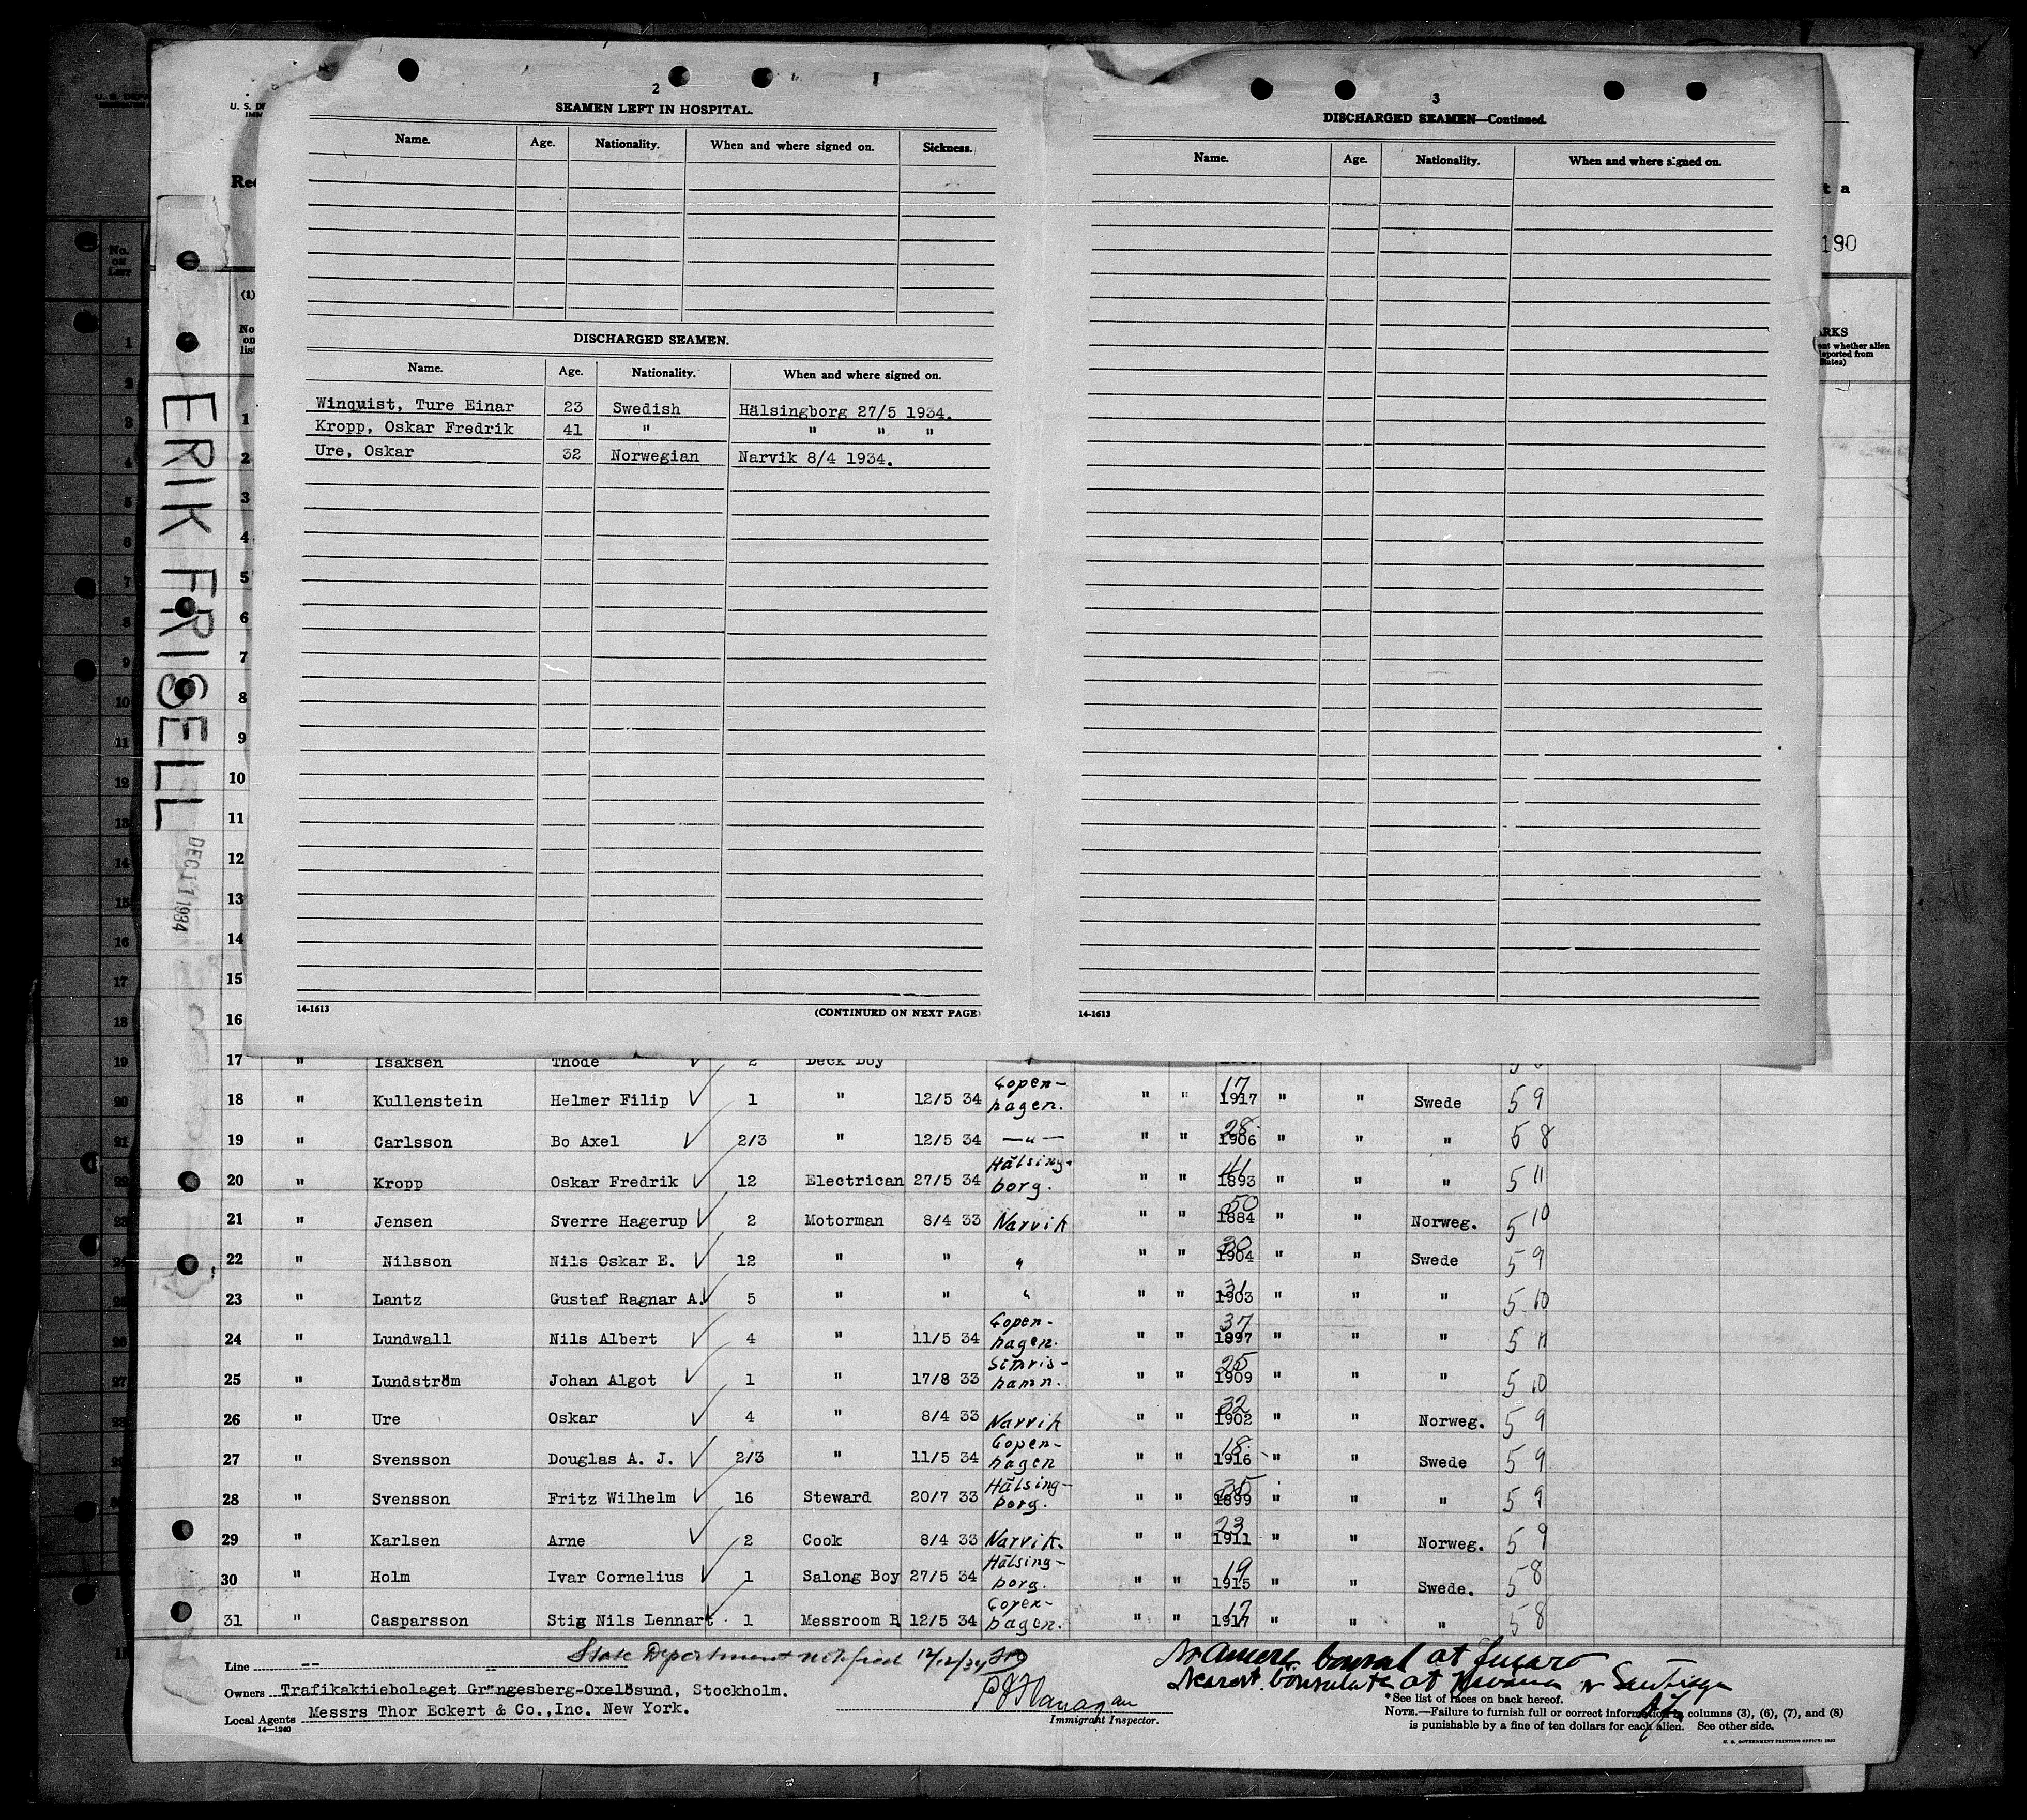 2
SEAMEN LEFT IN HOSPITAL.
Name. Age. Nationality. When and where signed on. Sickness.
DISCHARGED SEAMEN.
Name. Age. Nationality. When and where signed on.
Winquist, Ture Einar 23 Swedish Hälsingborg 27/5 1934.
Kropp, Oskar Fredrik 41 " " " "
Ure, Oskar 32 Norwegian Narvik 8/4 1934.
14-1613 (CONTINUED ON NEXT PAGE)
3
DISCHARGED SEAMEN—Continued.
Name. Age. Nationality. When and where signed on.
14-1613
U. S. DE
IMM
Red
t a
190
(1)
No
on
list
ARKS
ent whether alien
eported from
States)
ERIK FRISELL
DEC 11 1934
No.
on
List
1
2
3
4
5
6
7
8
9
10
11
12
13
14
15
16
17 " Isaksen Thode 2 Deck Boy
18 " Kullenstein Helmer Filip ✓ 1 " 12/5 34 Copen-hagen. " " 17 1917 " " Swede 5 9
19 " Carlsson Bo Axel ✓ 2/3 " 12/5 34 —"— " " 28 1906 " " " 5 8
20 " Kropp Oskar Fredrik ✓ 12 Electrican 27/5 34 Hälsing-borg. " " 41 1893 " " " 5 11
21 " Jensen Sverre Hagerup ✓ 2 Motorman 8/4 33 Narvik " " 50 1884 " " Norweg. 5 10
22 " Nilsson Nils Oskar E. ✓ 12 " " " " " 30 1904 " " Swede 5 9
23 " Lantz Gustaf Ragnar A. ✓ 5 " " " " " 31 1903 " " " 5 10
24 " Lundwall Nils Albert ✓ 4 " 11/5 34 Copen-hagen. " " 37 1897 " " " 5 11
25 " Lundström Johan Algot ✓ 1 " 17/8 33 Simris-hamn. " " 25 1909 " " " 5 10
26 " Ure Oskar ✓ 4 " 8/4 33 Narvik " " 32 1902 " " Norweg. 5 9
27 " Svensson Douglas A. J. ✓ 2/3 " 11/5 34 Copen-hagen " " 18 1916 " " Swede 5 9
28 " Svensson Fritz Wilhelm ✓ 16 Steward 20/7 33 Hälsing-borg. " " 35 1899 " " " 5 9
29 " Karlsen Arne ✓ 2 Cook 8/4 33 Narvik. " " 23 1911 " " Norweg. 5 9
30 " Holm Ivar Cornelius ✓ 1 Salong Boy 27/5 34 Hälsing-borg. " " 19 1915 " " Swede. 5 8
31 " Casparsson Stig Nils Lennart ✓ 1 Messroom B 12/5 34 Copen-hagen. " " 17 1917 " " " 5 8
State Department notified 12/12/34
Line --
Owners Trafikaktiebolaget Grängesberg-Oxelösund, Stockholm.
Local Agents Messrs Thor Eckert & Co.,Inc. New York.
14—1240
P J Flanagan
Immigrant Inspector.
No Amer. Consul at
Nearest Consulate at Havana or Santiago
*See list of races on back hereof.
NOTE.—Failure to furnish full or correct information in columns (3), (6), (7), and (8)
is punishable by a fine of ten dollars for each alien. See other side.
U. S. GOVERNMENT PRINTING OFFICE: